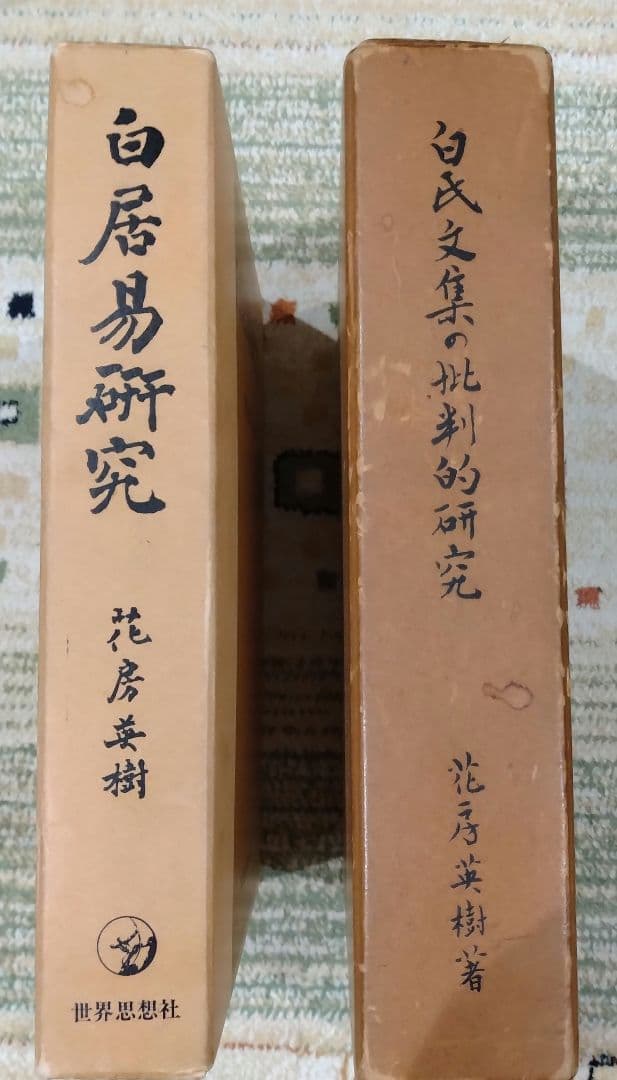 白居易研究
花房英樹
世界思想社
白氏文集の批判的研究
花房英樹著